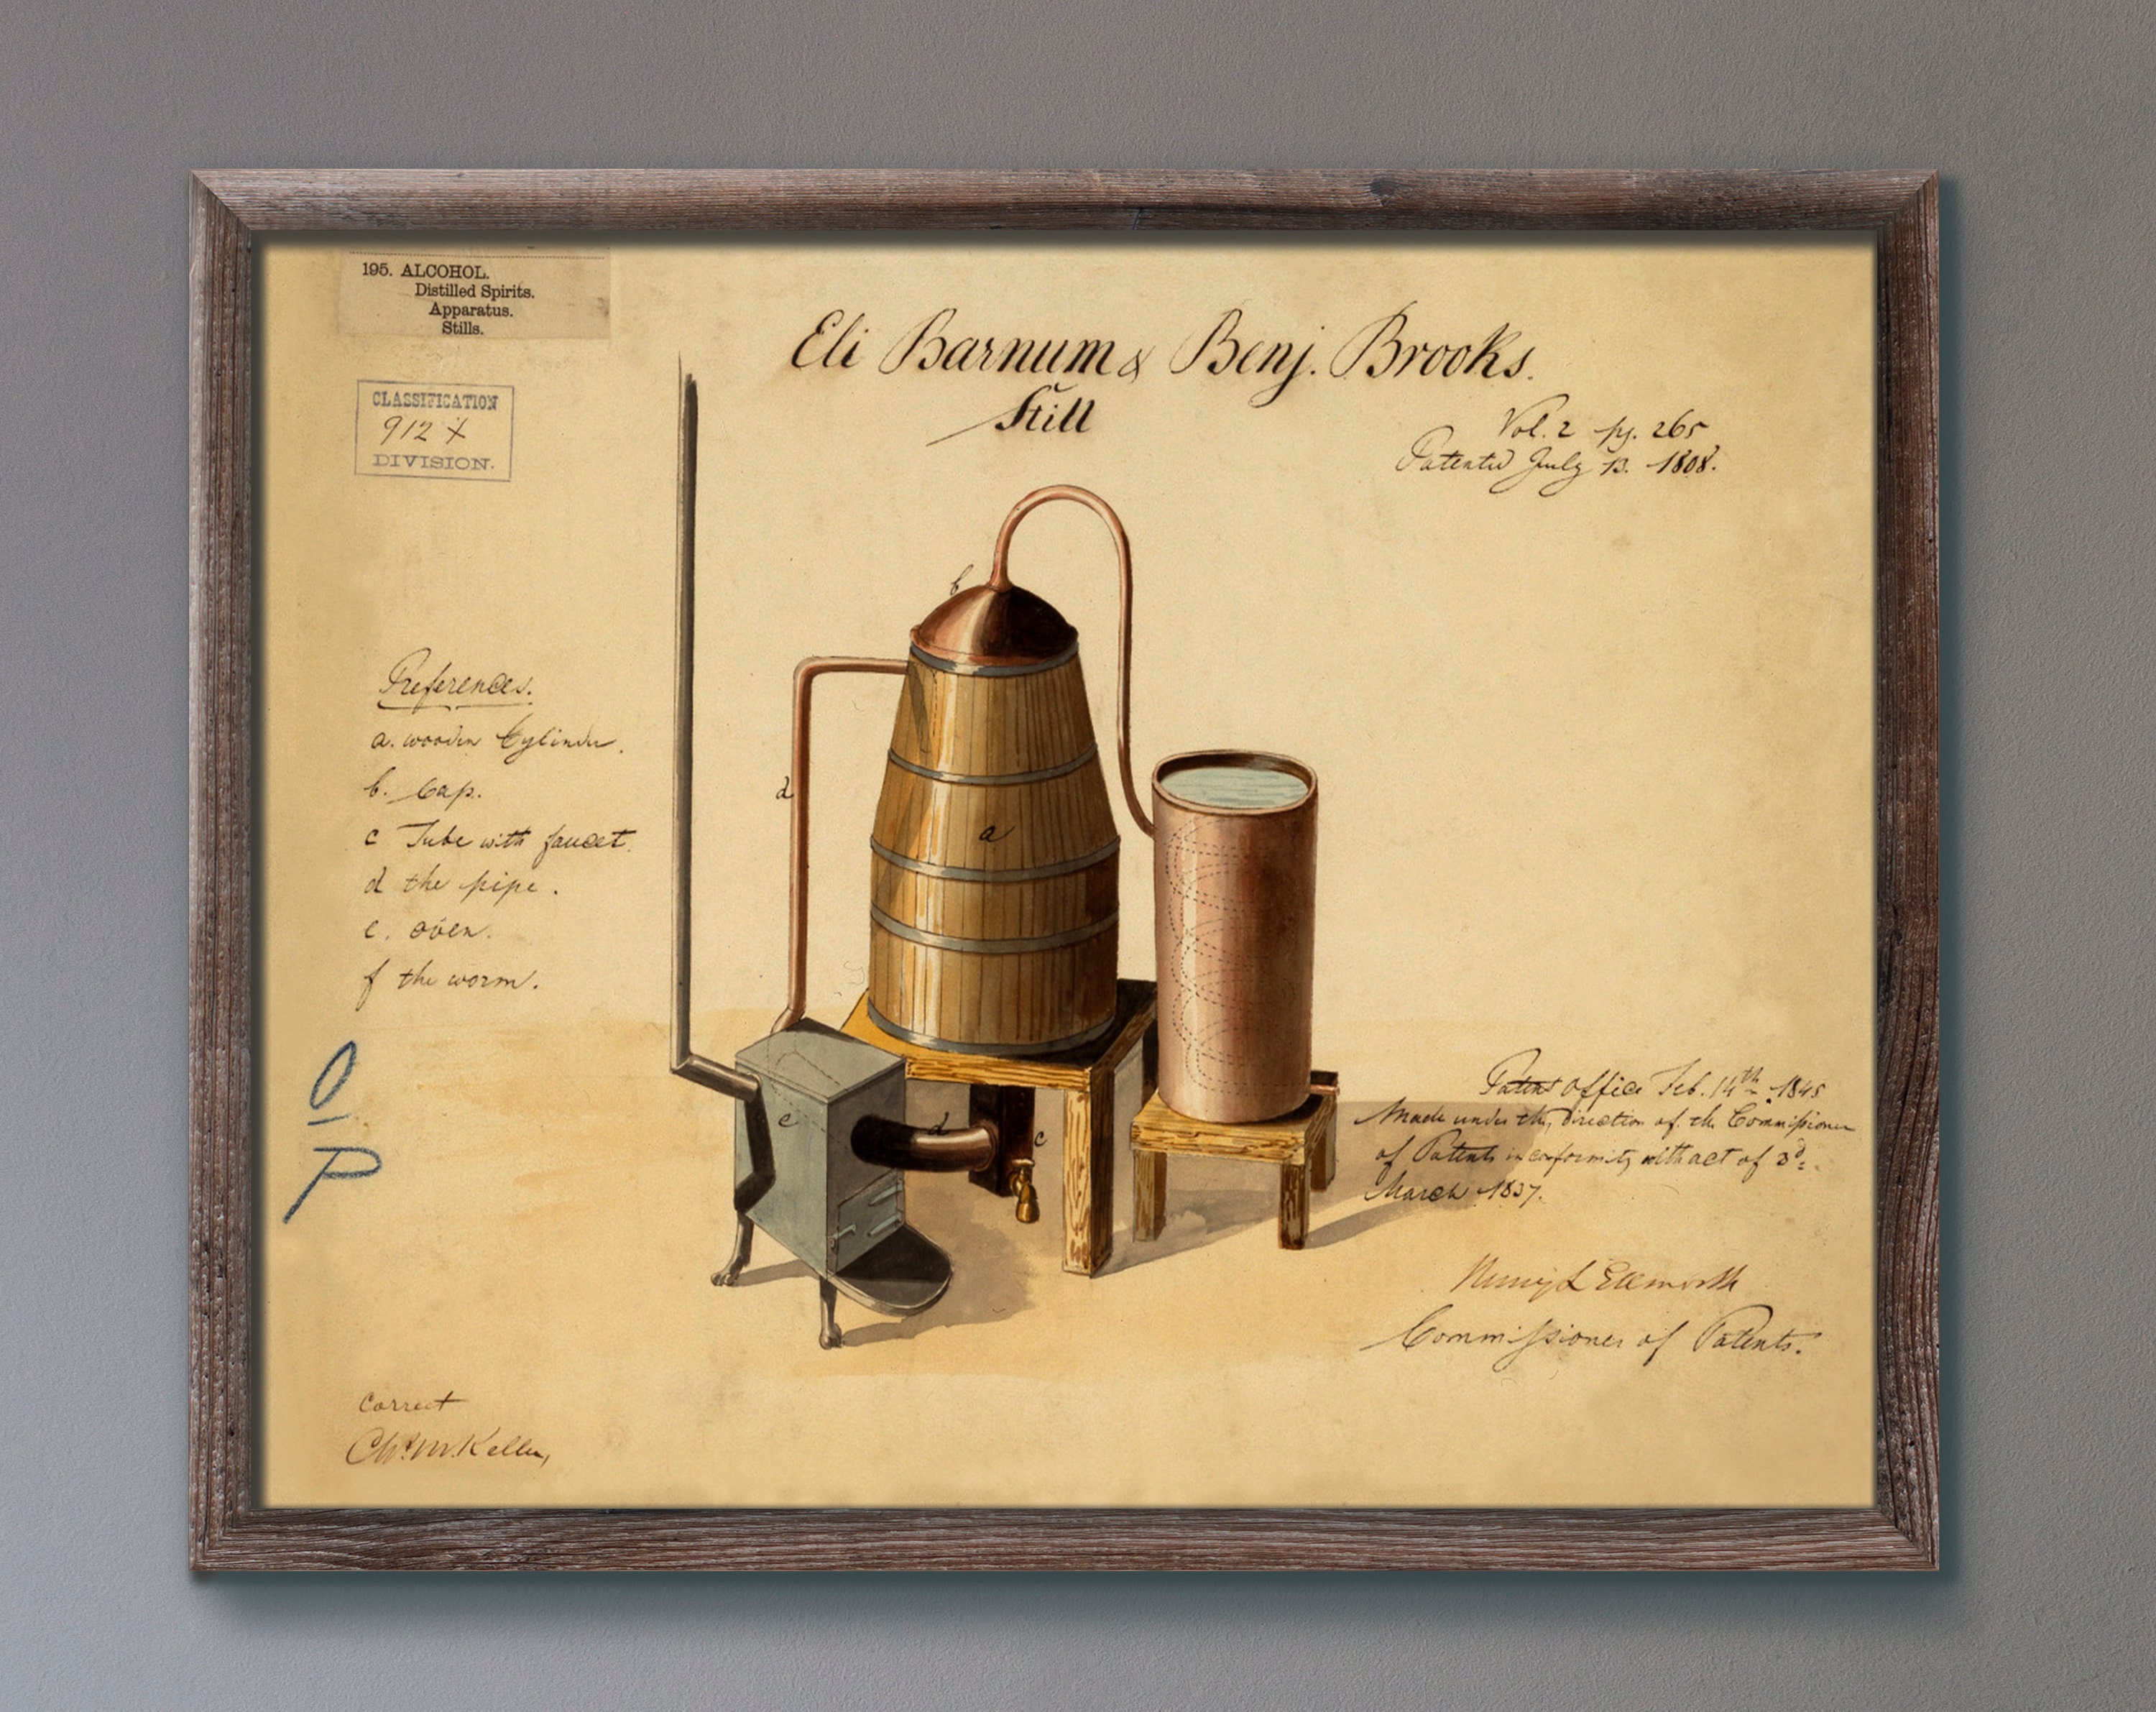 195. ALCOHOL.
Distilled Spirits.
Apparatus.
Stills.
CLASSIFICATION
912 X
DIVISION.
Eli Barnum & Benj. Brooks.
Still
Vol. 2 pg. 265
Patented July 13. 1808.
References.
a. wooden Cylinder.
b. Cap.
c Tube with faucet.
d the pipe.
e. oven.
f the worm.
b
d
a
e
d
c
O
P
Patent Office Feb. 14th 1845
Made under the direction of the Commissioner
of Patents in conformity with act of 3d.
March 1837.
Henry L Ellsworth
Commissioner of Patents.
Correct
Chs. M. Keller,